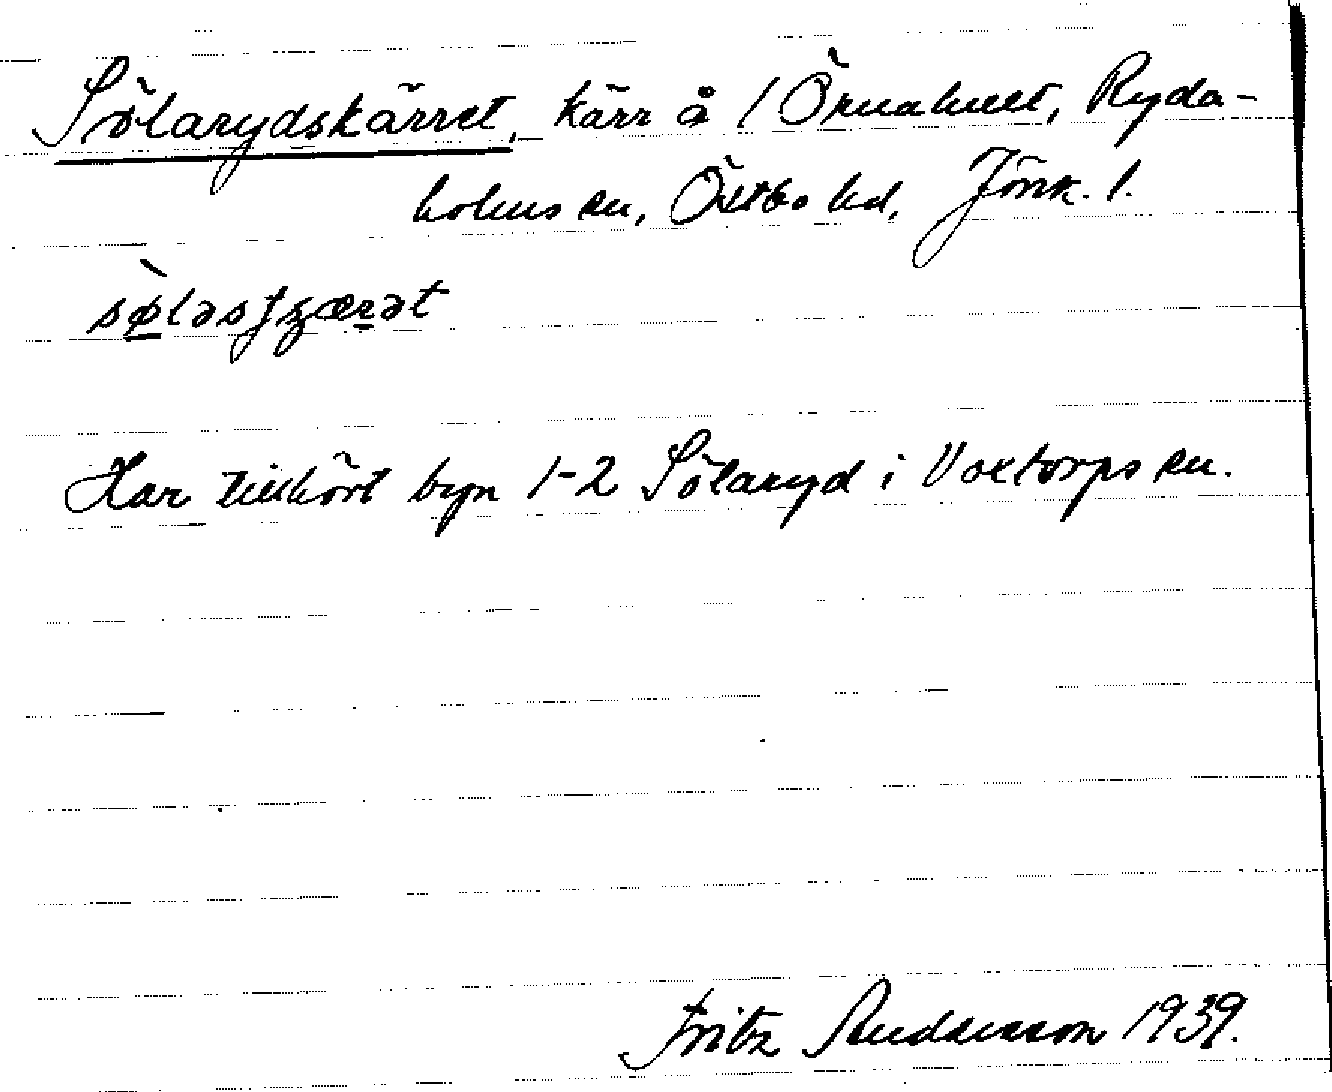 Sölarydskärret, kärr å 1 Örnahult, Ryda-
holms sn, Östbo hd, Jönk. l.
Har tillhört byn 1-2 Sölaryd i Voxtorps sn.
Fritz Andersson 1939.